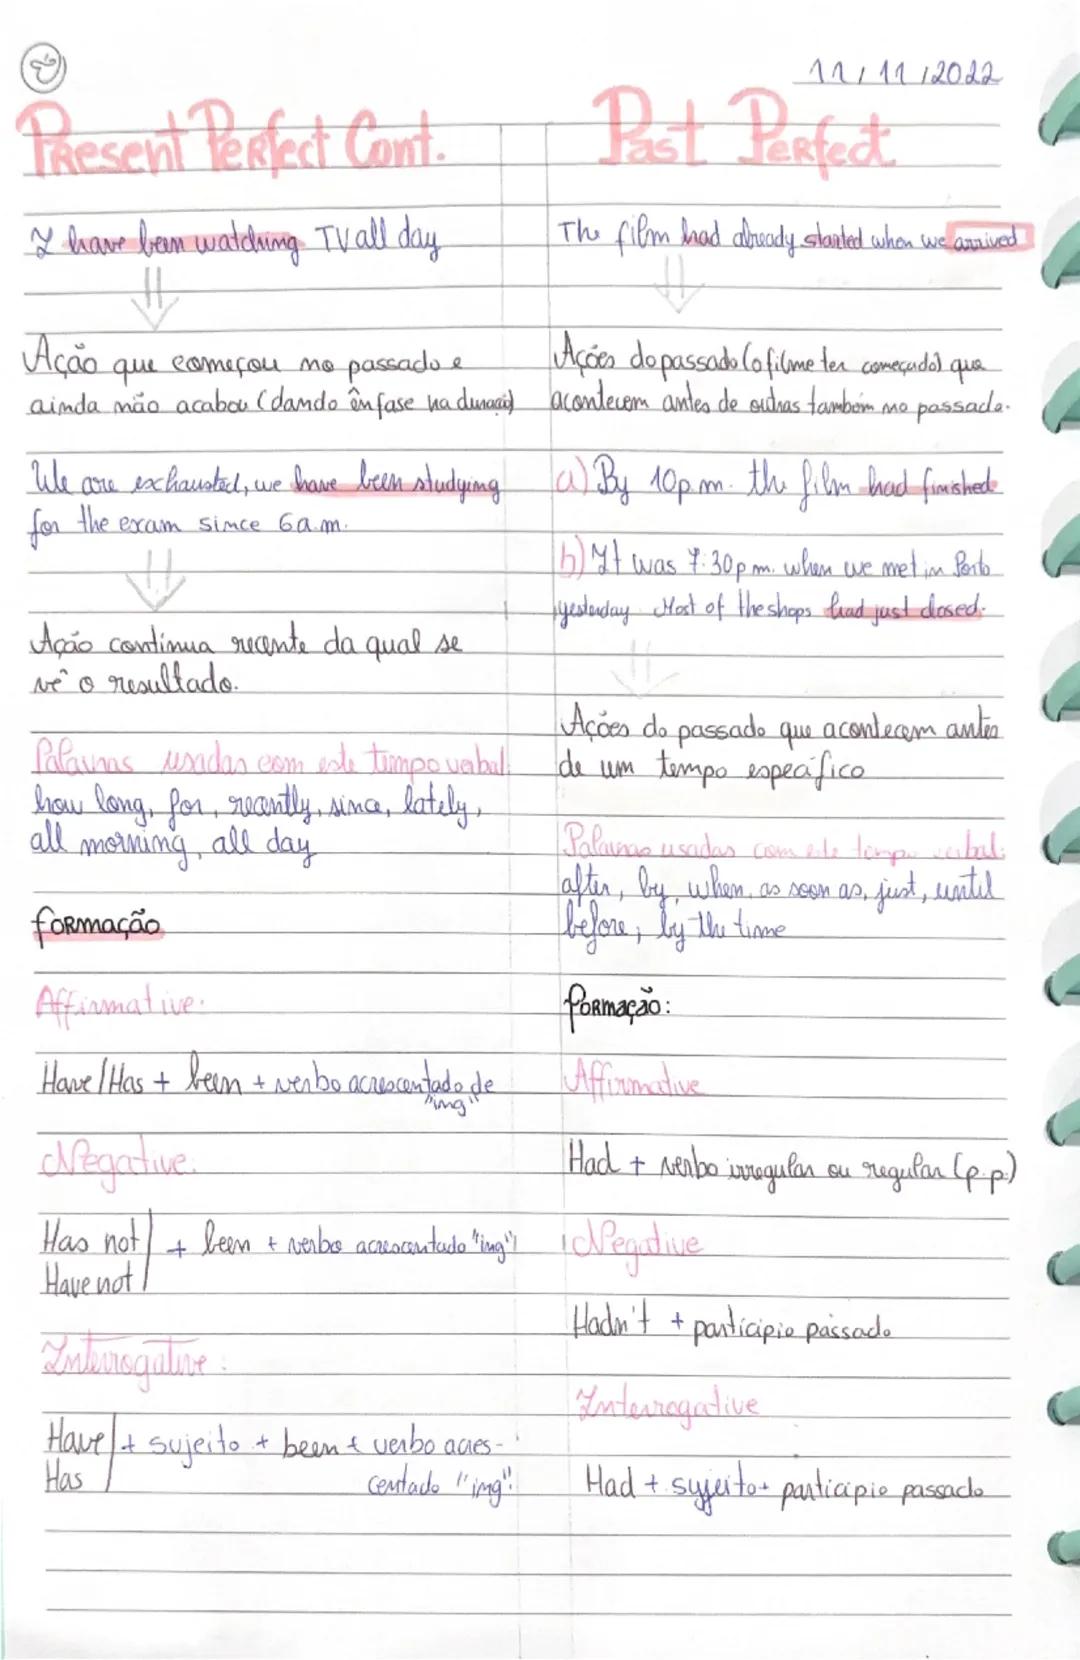 11/11/2022
Present Perfect Cont.
I have been watching TV all day
Ação que começou no passado e
ainda não acabou (dando ênfase na duração)
We are exhausted, we have been studying
for the exam since 6 a.m.
Ação contínua recente da qual se
vê o resultado.
Palavras usadas com este tempo verbal:
how long, for, recently, since, lately,
all morning, all day
formação
Affirmative:
Have/Has + been + verbo acrescentado de
"ing"
Negative:
Has not + been + verbo acrescentado "ing"
Have not
Interrogative:
Have + sujeito + been + verbo acres-
Has centado "ing".
Past Perfect
The film had already started when we arrived
Ações do passado (o filme ter começado) que
acontecem antes de outras também no passado.
a) By 10p.m. the film had finished
b) It was 7:30p.m. when we met in Porto
yesterday. Most of the shops had just closed.
Ações do passado que acontecem antes
de um tempo específico
Palavras usadas com este tempo verbal:
after, by, when, as soon as, just, until
before, by the time
formação:
Affirmative
Had + verbo irregular ou regular (p.p.)
Negative
Hadn't + particípio passado
Interrogative
Had + sujeito + particípio passado